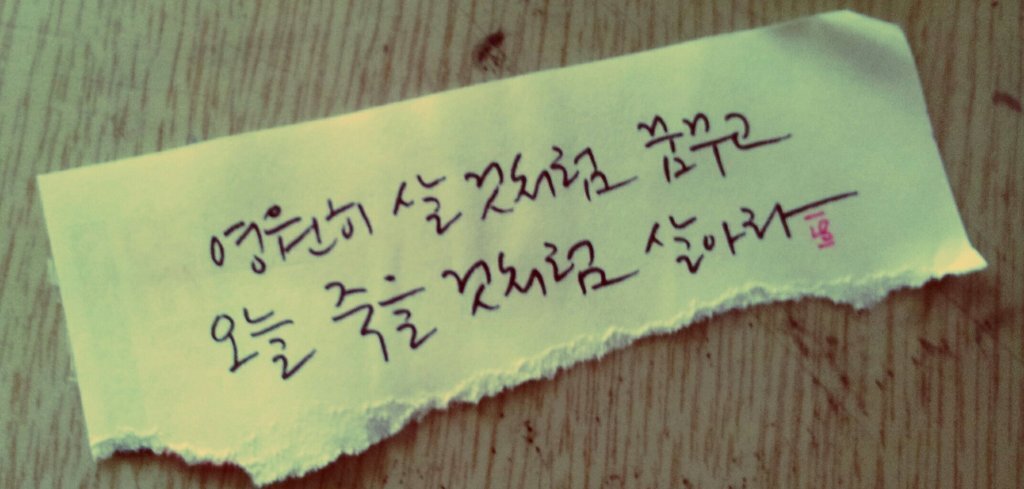 영원히 살 것처럼 꿈꾸고
오늘 죽을 것처럼 살아라